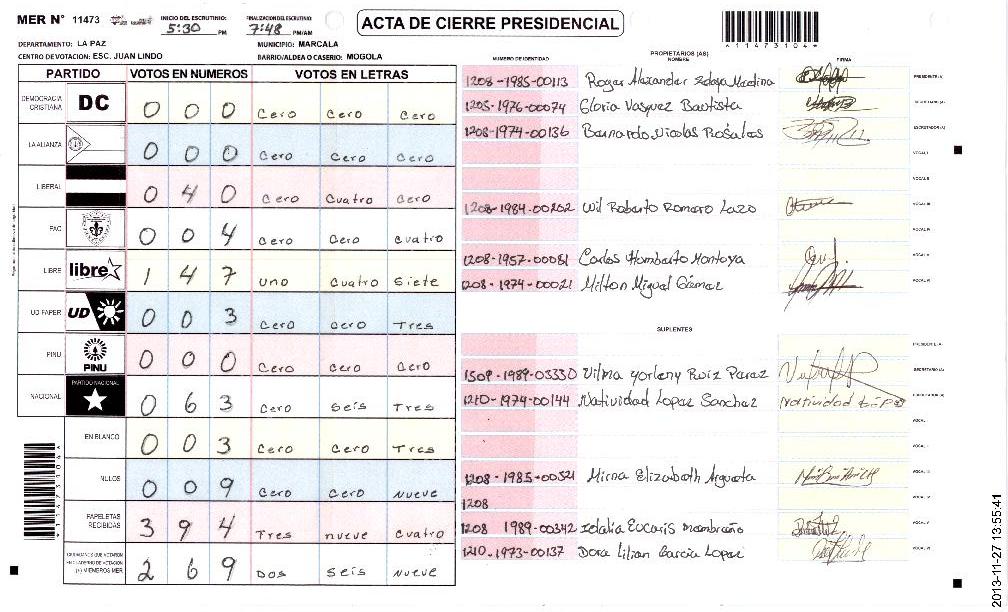 MER N° 11473
INICIO DEL ESCRUTINIO: 5:30 PM
FINALIZACION DEL ESCRUTINIO: 7:48 PM/AM
ACTA DE CIERRE PRESIDENCIAL
*11473104*
DEPARTAMENTO: LA PAZ
MUNICIPIO: MARCALA
CENTRO DE VOTACION: ESC. JUAN LINDO
BARRIO/ALDEA O CASERIO: MOGOLA
PARTIDO VOTOS EN NUMEROS VOTOS EN LETRAS
DEMOCRACIA CRISTIANA DC 0 0 0 Cero Cero Cero
LA ALIANZA 0 0 0 Cero Cero Cero
LIBERAL 0 4 0 Cero Cuatro Cero
PAC 0 0 4 Cero Cero Cuatro
LIBRE libre 1 4 7 Uno Cuatro Siete
UD FAPER UD 0 0 3 Cero Cero Tres
PINU PINU 0 0 0 Cero Cero Cero
NACIONAL PARTIDO NACIONAL 0 6 3 Cero Seis Tres
EN BLANCO 0 0 3 Cero Cero Tres
NULOS 0 0 9 Cero Cero Nueve
PAPELETAS RECIBIDAS 3 9 4 Tres nueve Cuatro
CIUDADANOS QUE VOTARON EN CUADERNO DE VOTACION (+) MIEMBROS MER 2 6 9 Dos Seis Nueve
PROPIETARIOS (AS)
NUMERO DE IDENTIDAD NOMBRE FIRMA
1208-1985-00113 Roger Alexander Medina PRESIDENTE(A)
1205-1976-00074 Gloria Vasquez Bautista SECRETARIO(A)
1208-1974-00136 Bernardo Nicolas Rosales ESCRUTADOR(A)
VOCAL I
VOCAL II
1208-1984-00202 Wil Roberto Romero Lazo VOCAL III
VOCAL IV
1208-1957-00081 Carlos Humberto Montoya VOCAL V
1208-1974-00021 Milton Miguel Gomez VOCAL VI
SUPLENTES
PRESIDENTE(A)
1509-1989-03330 Vilma Yorleny Ruiz Perez SECRETARIO(A)
1210-1974-00144 Natividad Lopez Sanchez Natividad ESCRUTADOR(A)
VOCAL I
VOCAL II
1208-1985-00521 Mirna Elizabeth Argueta VOCAL III
1208 VOCAL IV
1208 1989-00342 Idalia Eucaris Membreño VOCAL V
1210-1973-00137 Dora Lilian Garcia Lopez VOCAL VI
*11473104*
2013-11-27 13:55:41